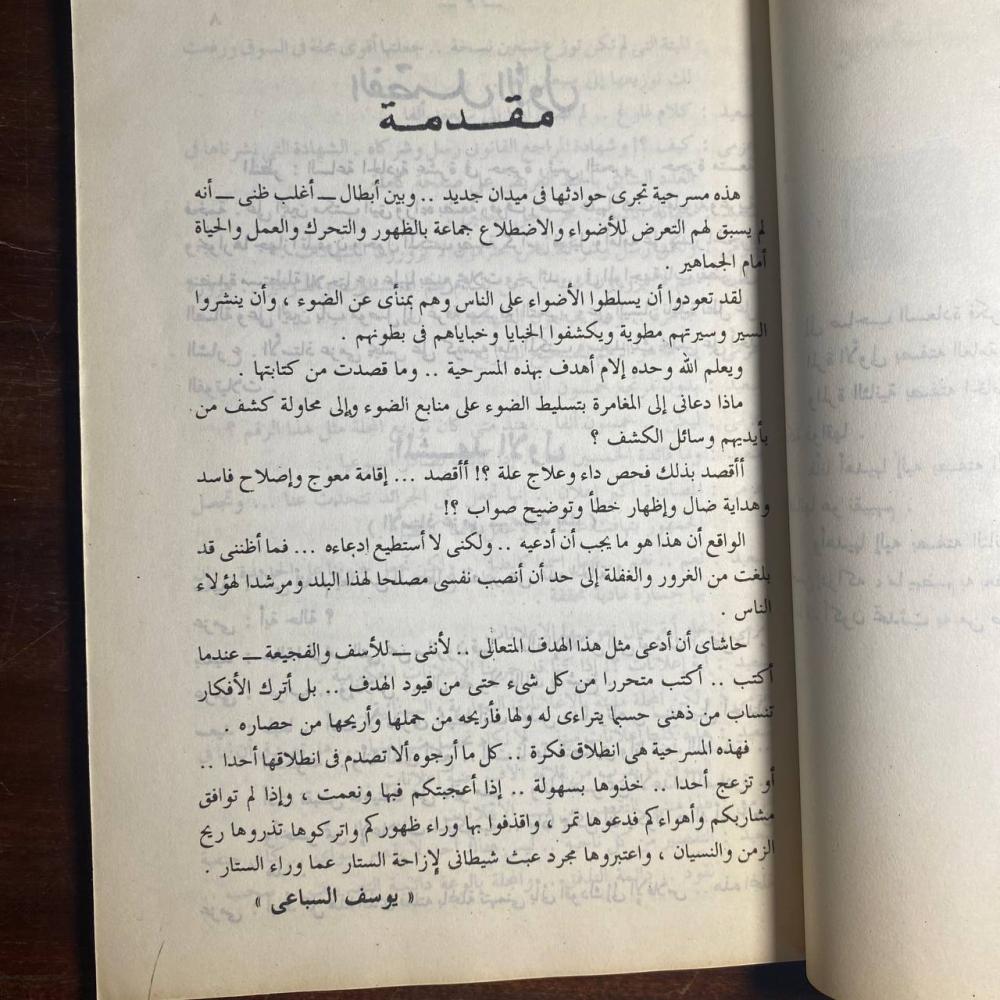 مقدمة
هذه مسرحية تجرى حوادثها فى ميدان جديد .. وبين أبطال ــ أغلب ظنى ــ أنه
لم يسبق لهم التعرض للأضواء والاضطلاع جماعة بالظهور والتحرك والعمل والحياة
أمام الجماهير .
لقد تعودوا أن يسلطوا الأضواء على الناس وهم بمنأى عن الضوء ، وأن ينشروا
السير وسيرتهم مطوية ويكشفوا الخبايا وخباياهم فى بطونهم .
ويعلم الله وحده إلام أهدف بهذه المسرحية .. وما قصدت من كتابتها .
ماذا دعانى إلى المغامرة بتسليط الضوء على منابع الضوء وإلى محاولة كشف من
بأيديهم وسائل الكشف ؟
أأقصد بذلك فحص داء وعلاج علة ؟! أأقصد ... إقامة معوج وإصلاح فاسد
وهداية ضال وإظهار خطأ وتوضيح صواب ؟!
الواقع أن هذا هو ما يجب أن أدعيه .. ولكنى لا أستطيع إدعاءه ... فما أظننى قد
بلغت من الغرور والغفلة إلى حد أن أنصب نفسى مصلحا لهذا البلد ومرشدا لهؤلاء
الناس .
حاشاى أن أدعى مثل هذا الهدف المتعالى .. لأننى ــ للأسف والفجيعة ــ عندما
أكتب .. أكتب متحررا من كل شىء حتى من قيود الهدف .. بل أترك الأفكار
تنساب من ذهنى حسبما يتراءى له ولها فأريحه من حملها وأريحها من حصاره .
فهذه المسرحية هى انطلاق فكرة .. كل ما أرجوه ألا تصدم فى انطلاقها أحدا ..
أو تزعج أحدا .. خذوها بسهولة .. إذا أعجبتكم فبها ونعمت ، وإذا لم توافق
مشاربكم وأهواءكم فدعوها تمر ، واقذفوا بها وراء ظهوركم واتركوها تذروها ريح
الزمن والنسيان ، واعتبروها مجرد عبث شيطانى لإزاحة الستار عما وراء الستار .
« يوسف السباعى »